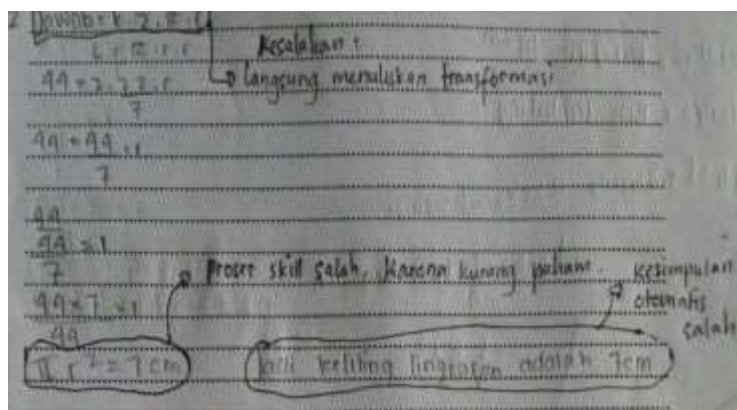 2 Jawab: k. 2. π. r
L = π. r. r
Kesalahan:
44 = 2. 22 . r
7
langsung menuliskan transformasi
44 = 44 . r
7
44
44 = r
7
Proses skill salah, karena kurang paham.
kesimpulan
otomatis
salah
44 × 7 = r
44
π r² = 7 cm
Jadi keliling lingkaran adalah 7cm